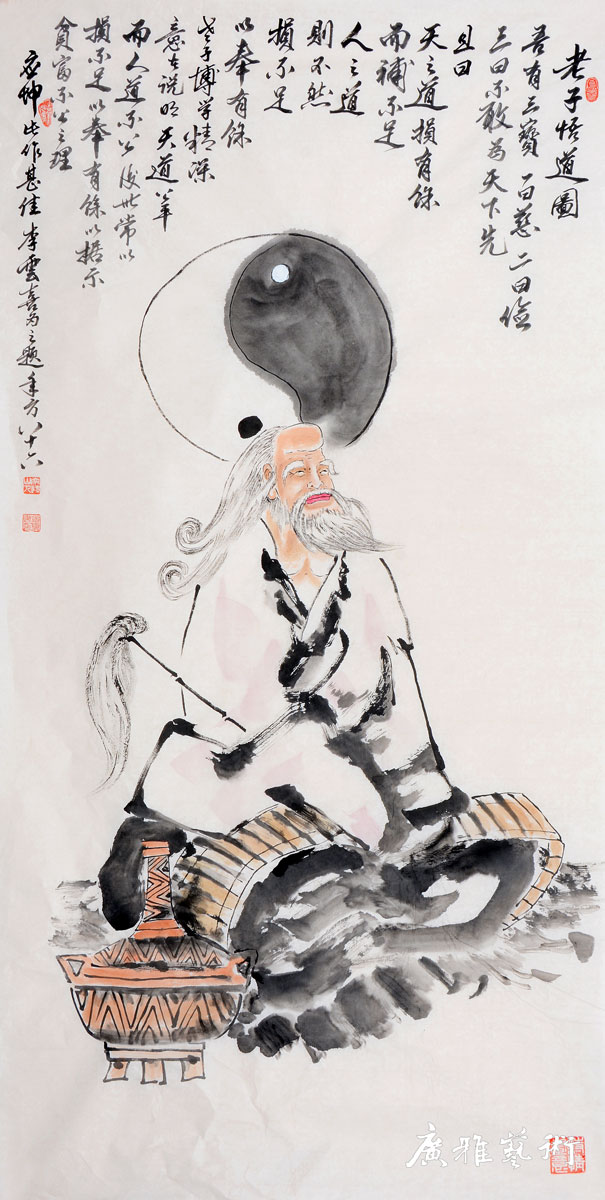 老子悟道圖
吾有三寶一曰慈二曰儉
三曰不敢為天下先
又曰
天之道損有餘
而補不足
人之道
則不然
損不足
以奉有餘
老子博學精深
意在說明天道公平
而人道不公後世常以
損不足以奉有餘以揭示
貧富不公之理
此作甚佳李雲喜為之題年方八十六
廣雅藝術